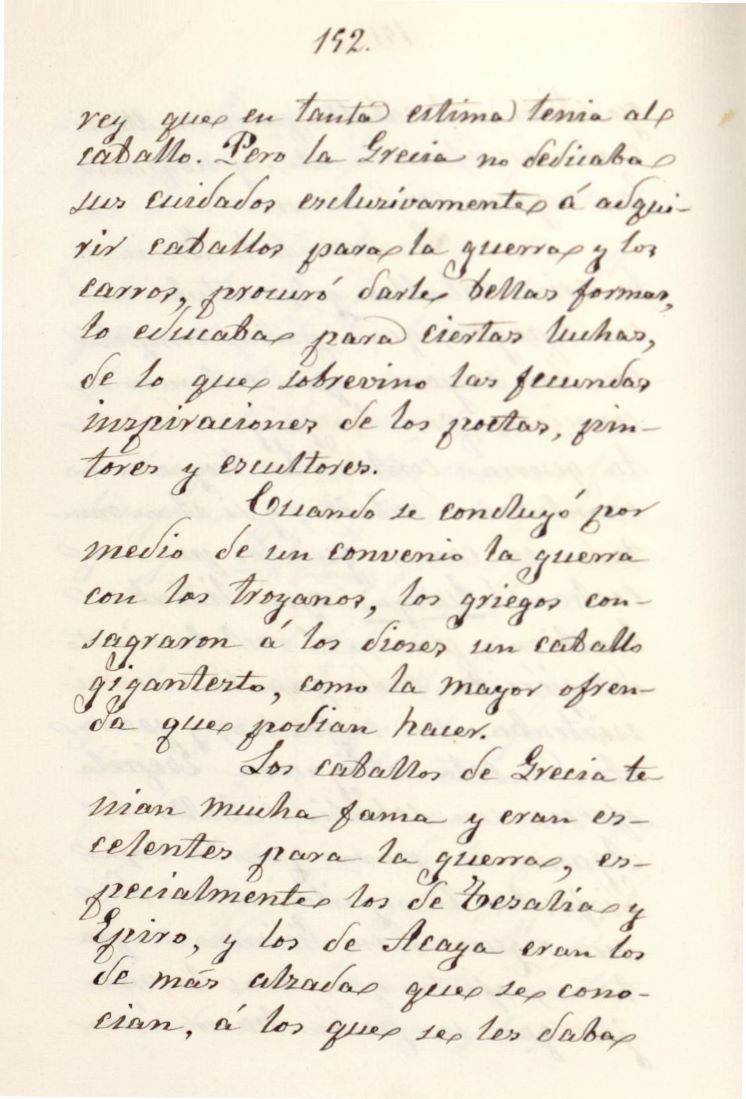 192.
rey que en tanta estima tenia al
caballo. Pero la Grecia no dedicaba
sus cuidados esclusivamente á adqui-
rir caballos para la guerra y los
carros, procuró darle bellas formas,
lo educaba para ciertas luchas,
de lo que sobrevino las fecundas
inspiraciones de los poetas, pin-
tores y escultores.
Cuando se concluyó por
medio de un convenio la guerra
con los troyanos, los griegos con-
sagraron á los dioses un caballo
gigantesto, como la mayor ofren-
da que podian hacer.
Los caballos de Grecia te
nian mucha fama y eran es-
celentes para la guerra, es-
pecialmente los de Tesalia y
Epiro, y los de Acaya eran los
de más alzada que se cono-
cian, á los que se les daba